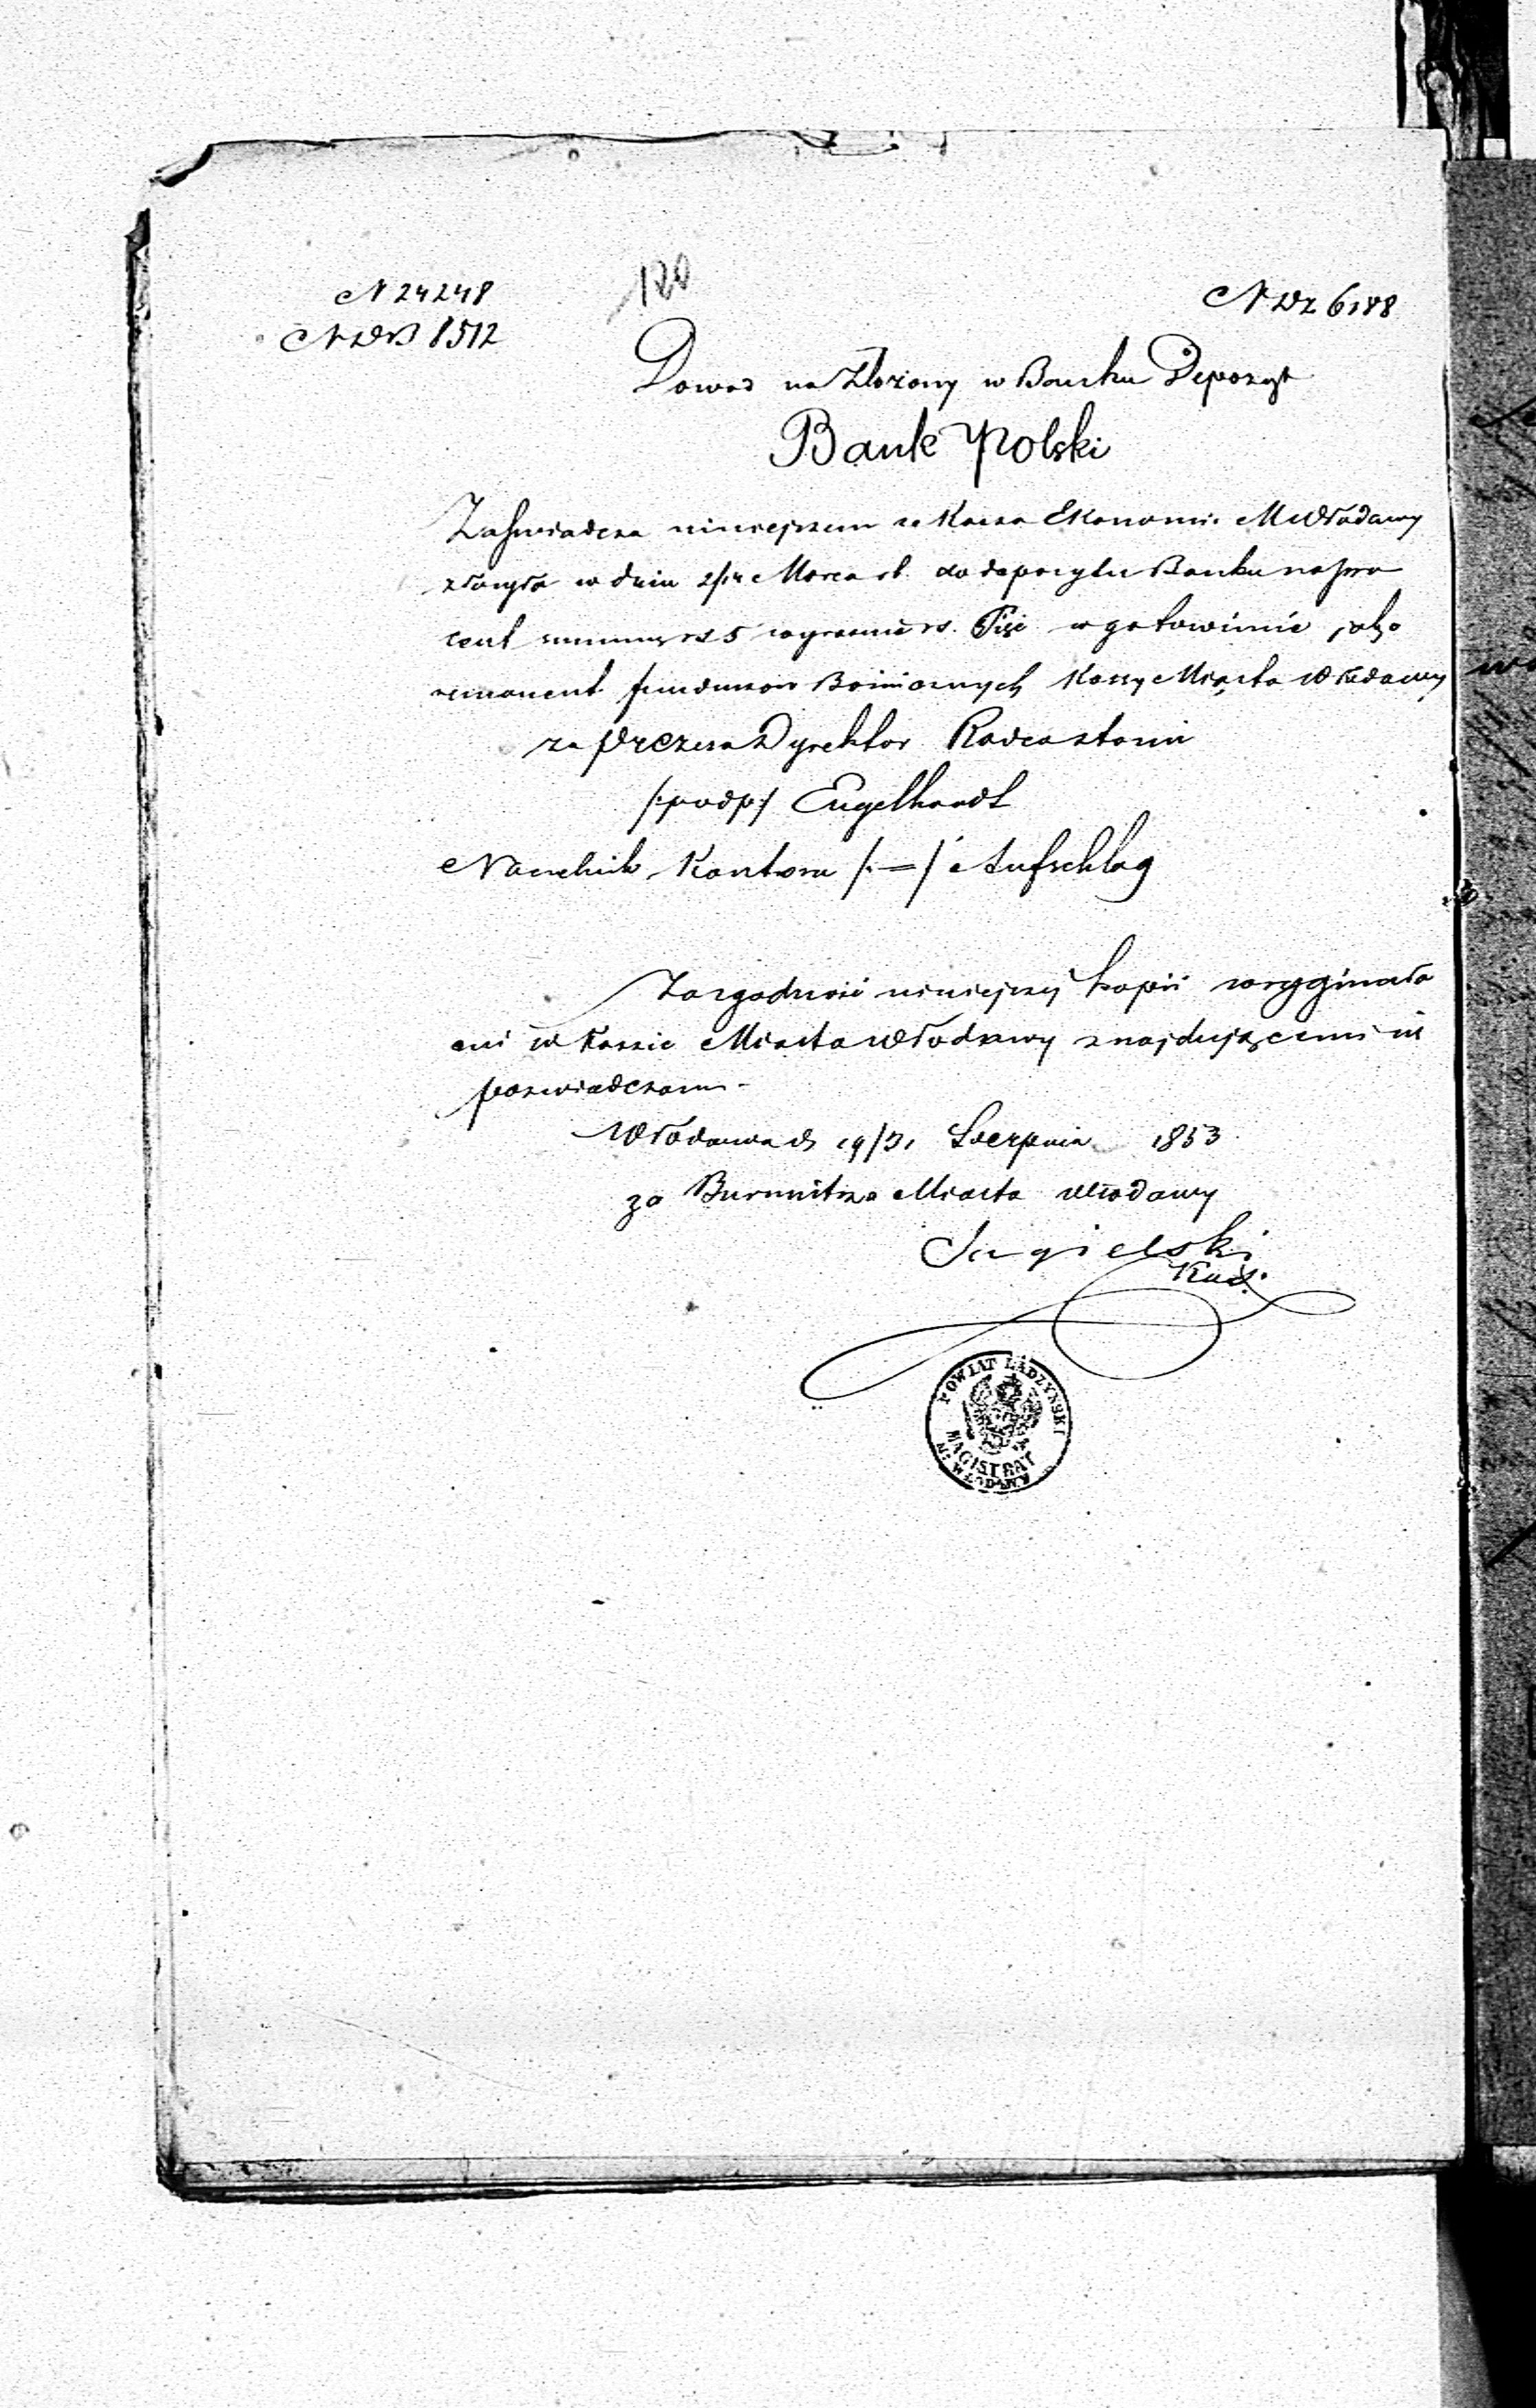 N 24248
120
N DZ 6188
N DB 8512
Dowod na złożony w Banku Depozyt
Bank Polski
Zaświadcza niniejszem że Kassa Ekonomi. M Włodawy
złożyła w dniu 2/14 Marca rb. do depozytu Banku na pro
cent summę rs 5 wyraźnie rs. Pięć w gotowiźnie, jako
remanent funduszow Bożnicznych Kassy Miasta Włodawy
za Prezesa Dyrektor Radca stanu
/:podp:/ Engelhardt
Naczelnik Kontoru /:=/ Aufschlag
Za zgodność niniejszej kopii z oryginała
mi w Kassie Miasta Włodawy znajdującemi się
poświadczam -
Włodawa d 19/31 Sierpnia 1853
za Burmistrza Miasta Włodawy
Jagielski
POWIAT RADZYNSKI
MAGISTRAT
M: WŁODAWA